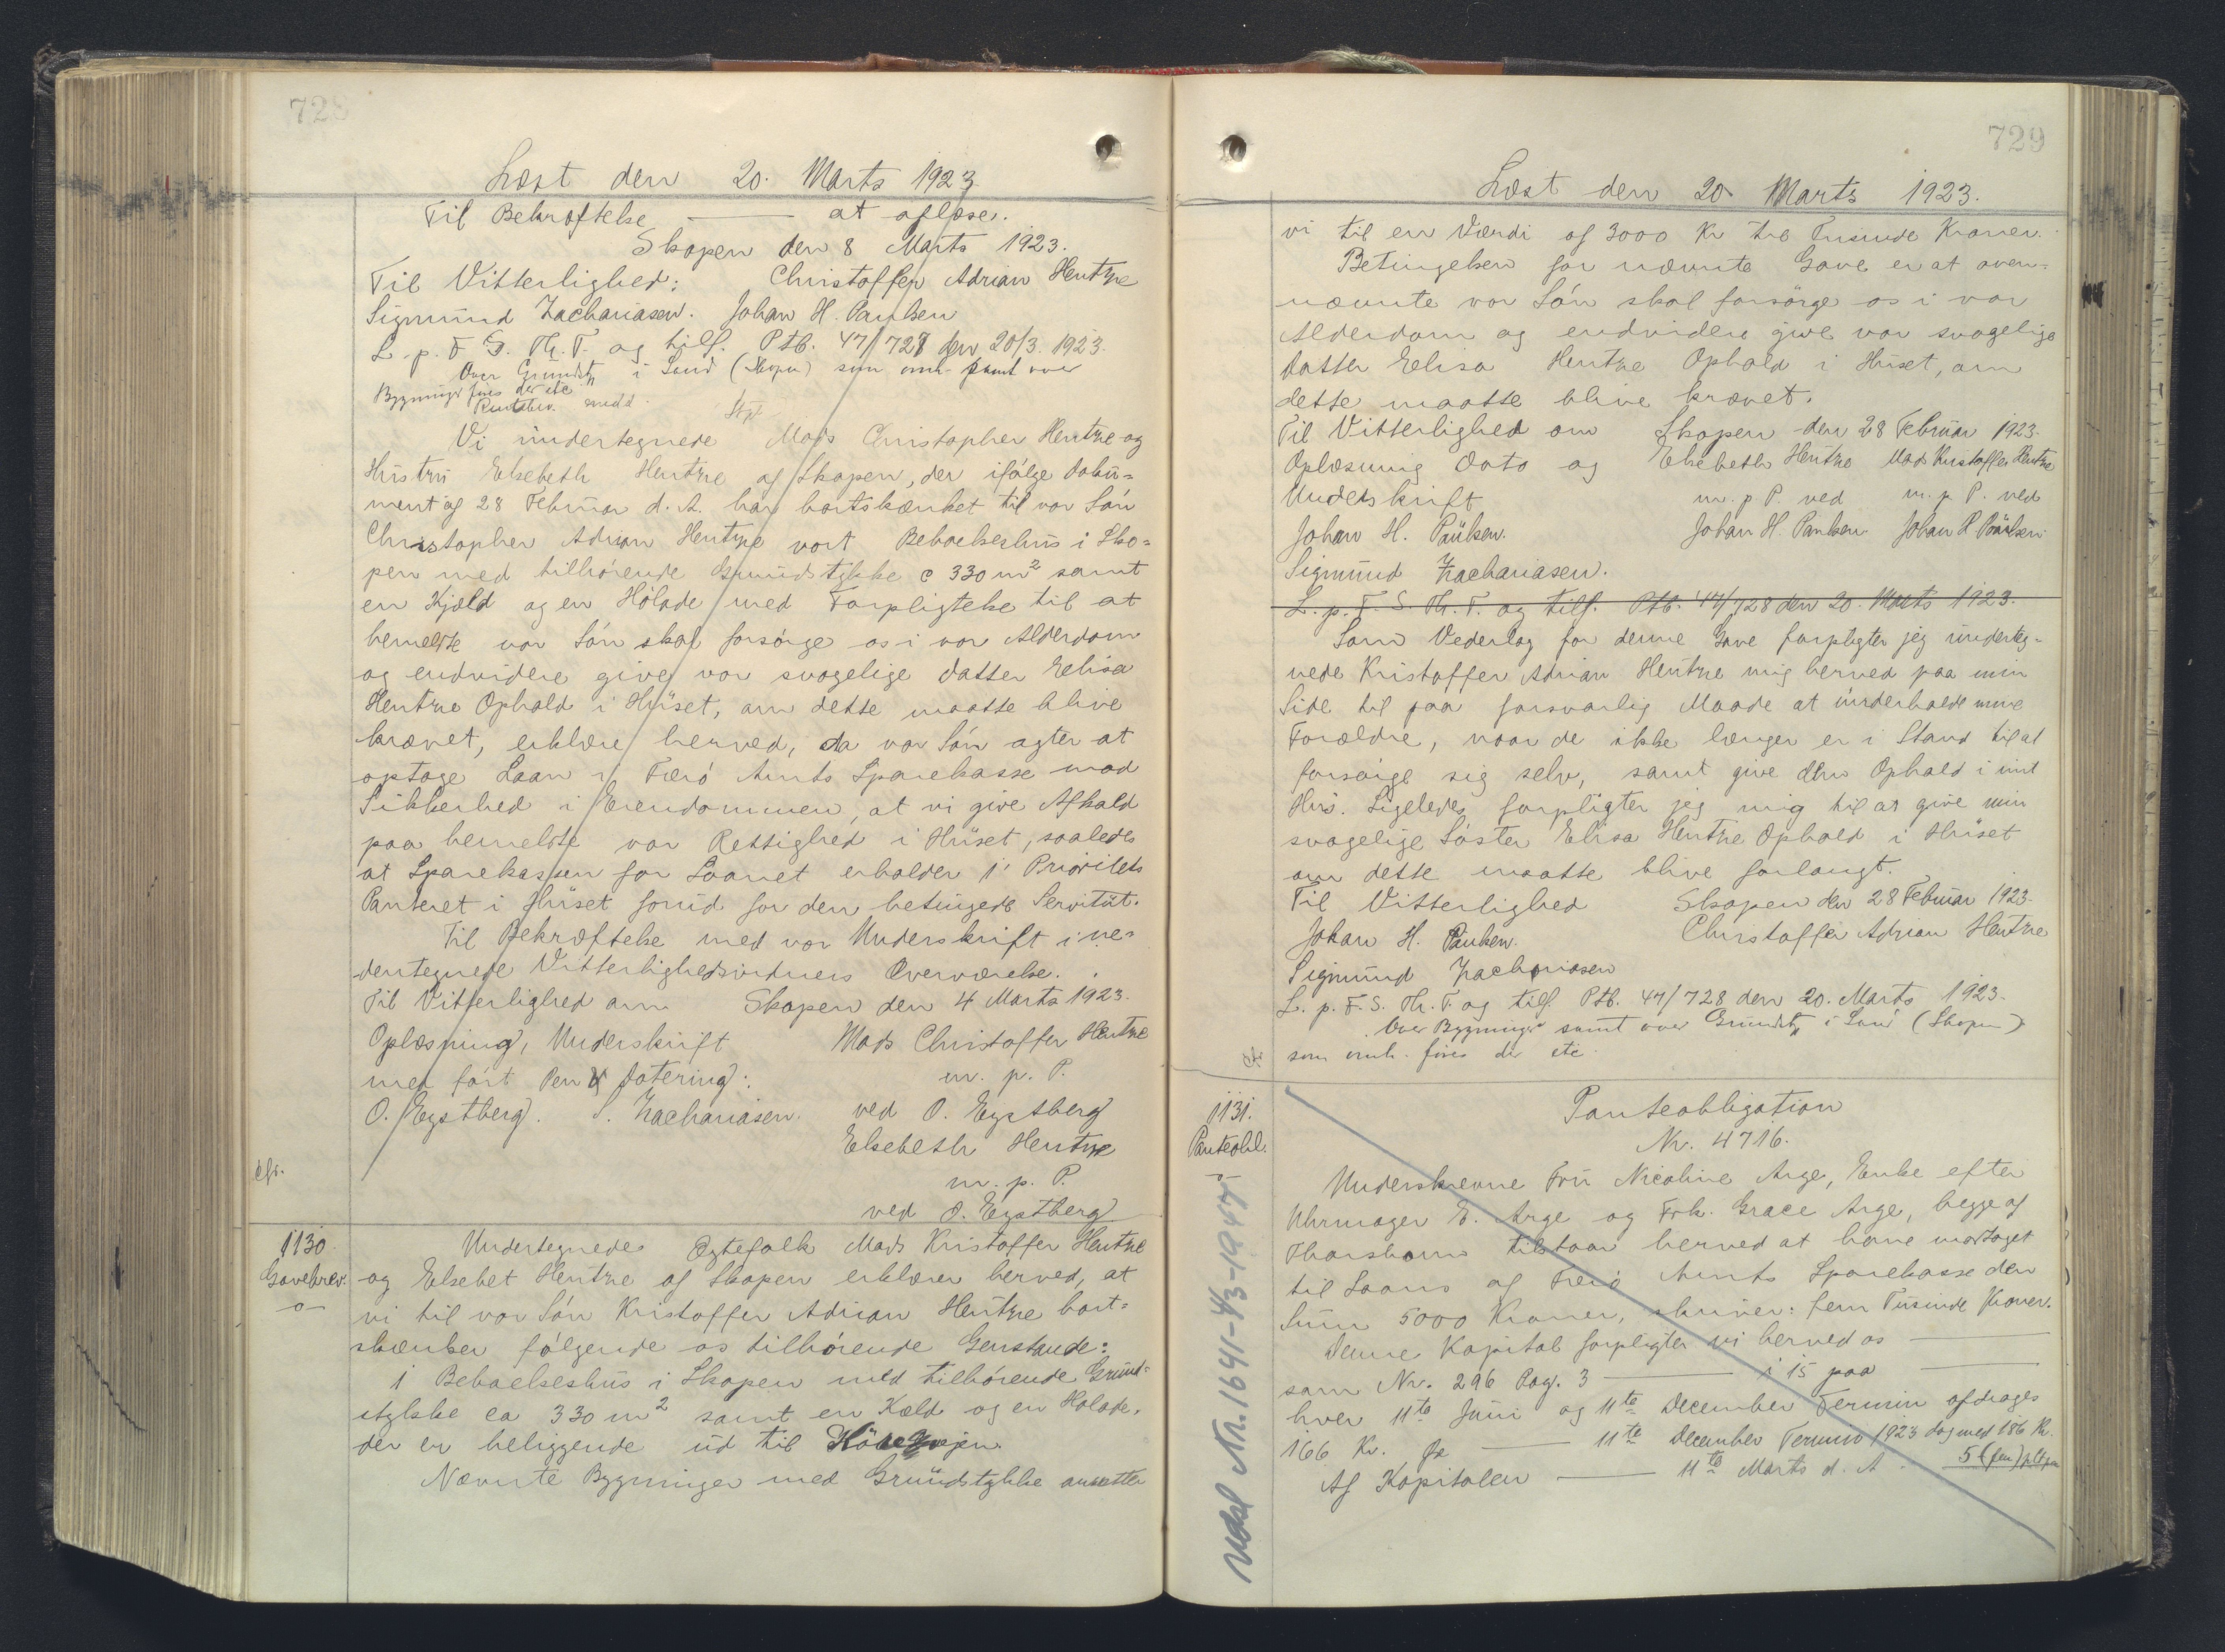 728
Læst den 20. Marts 1923
Til Bekræftelse ——— at aflæse.
Skopen den 8 Marts 1923.
Til Vitterlighed: Christoffer Adrian Hentze
Sigmund Zachariasen. Johan H. Paulsen
L. p. F. S. Th. T. og tilf. Ptb. 47/728 den 20/3. 1923.
Over Grundst. i Sand (Skopen) som omh. samt over
Bygninger føres der etc
Rentebev. medd.
Vi undertegnede Mads Christopher Hentze og
Hustru Elsebeth Hentze af Skopen, der ifølge Doku=
ment af 28 Februar d. A. har bortskænket til vor Søn
Christopher Adrian Hentze vort Beboelseshus i Sko=
pen med tilhørende Grundstykke c 330 m² samt
en Kjeld og en Hölade med Forpligtelse til at
bemeldte vor Søn skal forsørge os i vor Alderdom
og endvidere give vor svagelige Datter Elisa
Hentze Ophold i Huset, om dette maatte blive
krævet, erklære herved, da vor Søn agter at
optage Laan i Færö Amts Sparekasse mod
Sikkerhed i Ejendommen, at vi give Afkald
paa bemeldte vor Rettighed i Huset, saaledes
at Sparekassen for Laanet erholder 1' Prioritets
Panteret i Huset forud for den betingede Servitut.
Til Bekræftelse med vor Underskrift i ne=
dentegnede Vitterlighedsvidners Overværelse.
Til Vitterlighed om Skopen den 4 Marts 1923.
Oplæsning, Underskrift Mads Christoffer Hentze
med ført Pen & Datering: m. p. P.
O. Eystberg. S. Zachariasen. ved O. Eystberg
Elsebeth Hentze
cfr. m. p. P.
ved O. Eystberg
1130. Undertegnede Ægtefolk Mads Kristoffer Hentze
Gavebrev. og Elsebet Hentze af Skopen erklærer herved, at
vi til vor Søn Kristoffer Adrian Hentze bort=
skænker følgende os tilhørende Genstande:
1 Beboelseshus i Skopen med tilhørende Grund=
stykke ca 330 m² samt en Kæld og en Hølade,
der er beliggende ud til
Nævnte Bygninger med Grundstykke ansætter
729
Læst den 20. Marts 1923.
vi til en Værdi af 3000 Kr tre Tusinde Kroner.
Betingelsen for nævnte Gave er at oven=
nævnte vor Søn skal forsørge os i vor
Alderdom og endvidere give vor svagelige
Datter Elisa Hentze Ophold i Huset, om
dette maatte blive krævet.
Til Vitterlighed om Skopen den 28 Februar 1923.
Oplæsning Dato og Elsebeth Hentze Mads Kristoffer Hentze
Underskrift m. p P. ved m. p P. ved
Johan H. Paulsen. Johan H. Paulsen Johan H Paulsen
Sigmund Zachariasen.
L. p. F. S. Th. T. og tilf. Ptb. 47/728 den 20. Marts 1923.
Som Vederlag for denne Gave forpligter jeg underteg=
nede Kristoffer Adrian Hentze mig herved paa min
Side til paa forsvarlig Maade at underholde mine
Forældre, naar de ikke længer er i Stand til at
forsørge sig selv, samt give dem Ophold i mit
Hus. Ligeledes forpligter jeg mig til at give min
svagelige Søster Elisa Hentze Ophold i Huset
om dette maatte blive forlangt.
Til Vitterlighed Skopen den 28 Februar 1923.
Johan H. Paulsen. Christoffer Adrian Hentze
Sigmund Zachariasen
L. p. F. S. Th. T. og tilf. Ptb. 47/728 den 20. Marts 1923.
Over Bygninger samt over Grundst. i Sand (Skopen)
som omh. føres der etc.
1131. Panteobligation
Panteobl. Nr. 4716.
Underskrevne Fru Nicoline Arge, Enke efter
Uhrmager E. Arge og Frk. Grace Arge, begge af
Thorshavn tilstaar herved at have modtaget
til Laans af Færö Amts Sparekasse den
Sum 5000 Kroner, skriver: fem Tusinde Kroner.
Denne Kapital forpligter vi herved os ———
som Nr. 296 Pag. 3 ——— i 15 paa ———
hver 11te Juni og 11te December Termin afdrages
166 Kr. ——— 11te December Termin 1923 dog med 186 Kr.
Af Kapitalen ——— 11te Marts d. A. 5 (fem)
Udsl Nr. 1641-4/3-1947